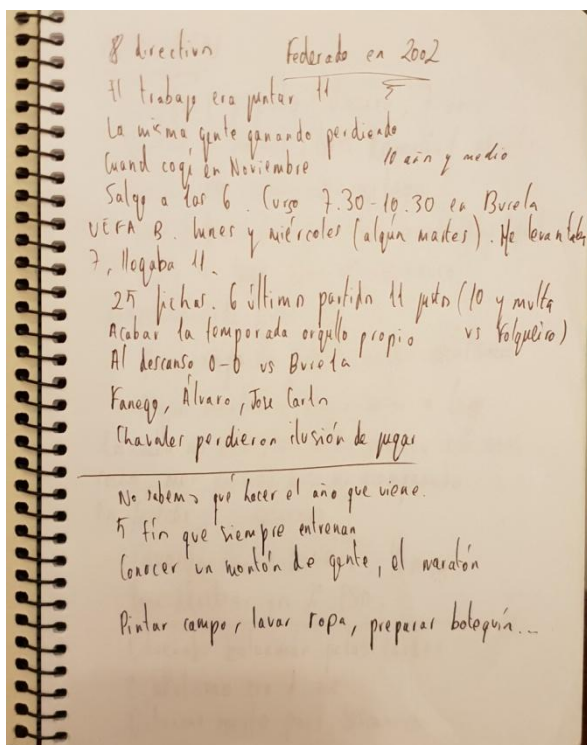 8 directivos Federado en 2002
El trabajo era juntar 11 5
La misma gente ganando perdiendo
Cuand cogí en Noviembre 10 años y medio
Salgo a las 6. Curso 7.30-10.30 en Burela
UEFA B. lunes y miércoles (algún martes). Me levantaba
7, llegaba 11.
25 fichas. 6 últimos partidos 11 justos (10 y multa
Acabar la temporada orgullo propio vs Folgueiro)
Al descanso 0-0 vs Burela
Fanego, Álvaro, Jose Carlos
Chavales perdieron ilusión de jugar
No sabemos qué hacer el año que viene.
5 fin que siempre entrenan
Conocer un montón de gente, el maratón
Pintar campo, lavar ropa, preparar botequín...